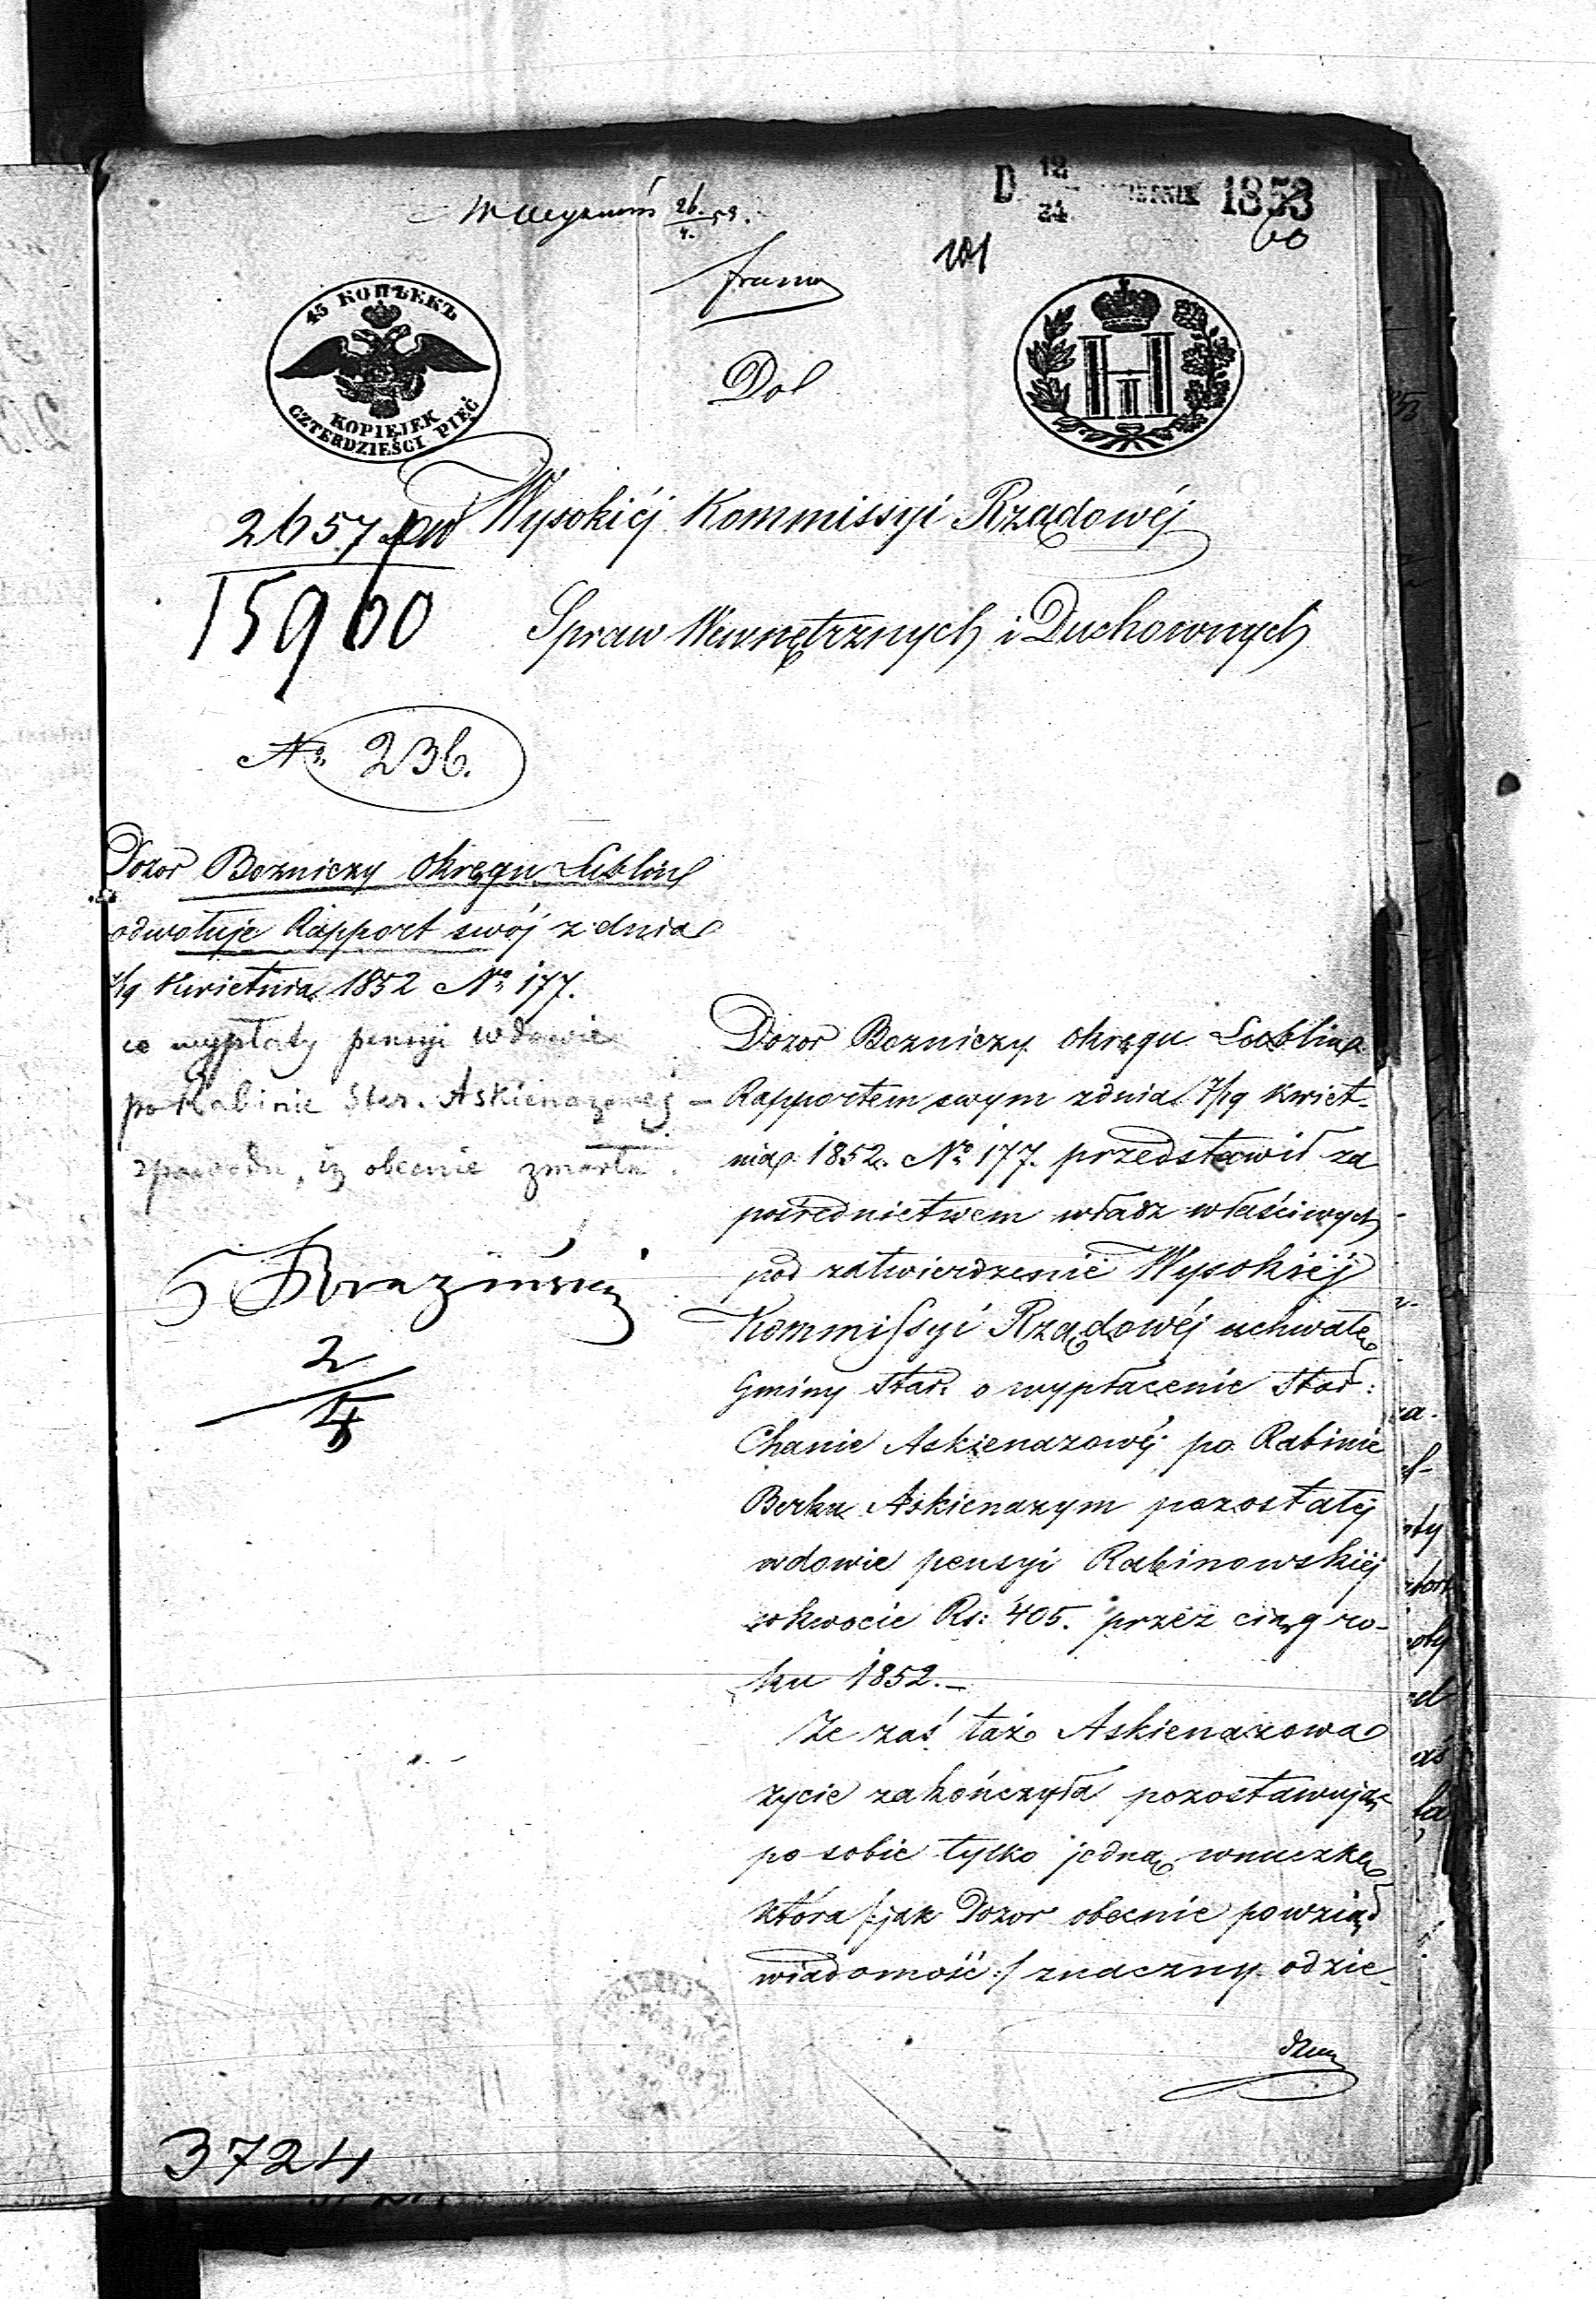 D 12/24 1853
60
101
26/4 53.
45 КОПѢЕКЪ
KOPIEJEK
CZTERDZIEŚCI PIĘĆ
HI
Dol
2657
15960
Wysokiéj Kommissyi Rządowéj
Spraw Wewnętrznych i Duchownych
No 236.
Dozor Bozniczy Okręgu Lublin
odwołuje Rapport swój z dnia
7/19 Kwietnia 1852 No 177.
co wypłaty pensyi wdowie
po Rabinie Star. Askienazowéj –
z powodu, iż obecnie zmarła.
2/4
Dozor Bozniczy Okręgu Lublina
Rapportem swym z dnia 7/19 Kwiet-
nia 1852. No 177. przedstawił za
pośrednictwem władz właściwych
pod zatwierdzenie Wysokiéj
Kommissyi Rządowéj uchwałę
Gminy Star: o wypłacenie Star:
Chanie Askienazowéj po Rabinie
Berku Askienazym pozostałéj
wdowie pensyi Rabinowskiéj
w kwocie Rs: 405. przez ciąg ro-
ku 1852.–
Ze zaś taż Askienazowa
życie zakończyła pozostawując
po sobie tylko jedną wnuczkę
która /:jak Dozor obecnie powziął
wiadomość:/ znaczny odzie-
3724